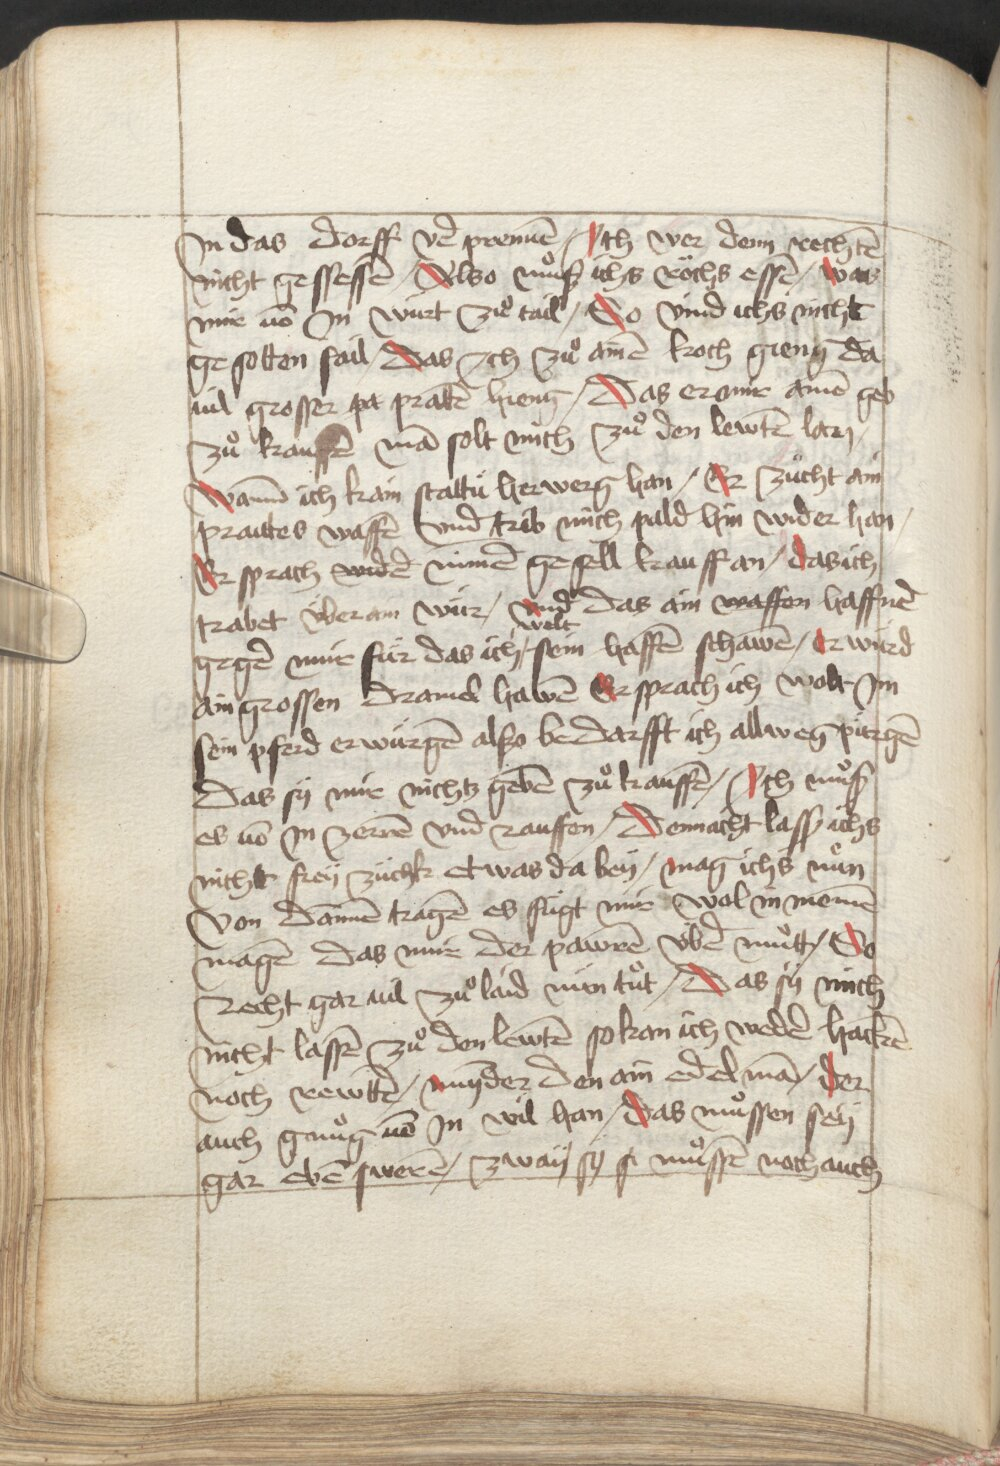 In das dorff vē prennē / Ich wer denn rechtē
nicht gessessē / Also muͦß ichs röchs essē / was
mir uō In wu̍rt zuͦ tail / So vind ichs nicht
gesotten fail / Das Ich zuͦ ainē koch gieng da
uil grosser pa pratē hieng / Das er mir ainē geb
zuͦ kauffē mā solt mich zuͦ den lewtē lan /
Wann ich kain stattu̍ herwerg han / Er zu̍cht ain
prattes waffē vnd trib mich pald hin wider han /
Er sprach widē nimē gesell kauff an / das ich
trabet u̍ber am wu̍r / vnd das ain waffen haffnē
welt
gegē mir fu̍r das ich sein haffē schawē / er wu̍rd
ain grossen dramel hawē Er sprach ich wolt Im
sein pferd erwu̍rgē also bedarfft ich allweg pu̍rgē
das sÿ mir nichtz gebē zuͦ kauffē / Ich muͦß
es uō In zerrē vnd rauffen / Dennacht lasß ichs
nicht freÿ zu̍ckt etwas da beÿ / mag ichs nuͦn
Von dannē tragē es fu̍gt mir wol in meinē
magē das mir der pawrē u̍bē muͦtt / So
Recht gar uil zuͦ laid nun tuͦt / Das sÿ mich
nicht lassē zuͦ den lewtē so kan ich wedē hackē
noch rewttē / mynder den ain edel mā / der
auch genuͦg uō In wil han / das muͦssen seÿ
gar ebē swerē / zwaÿ sÿ si muͦssē noch auch